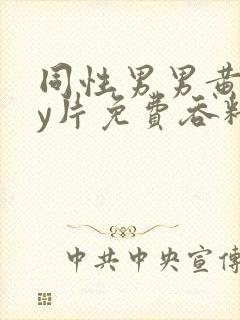 同性男男黄
y片免費吞
中共中央宣傳